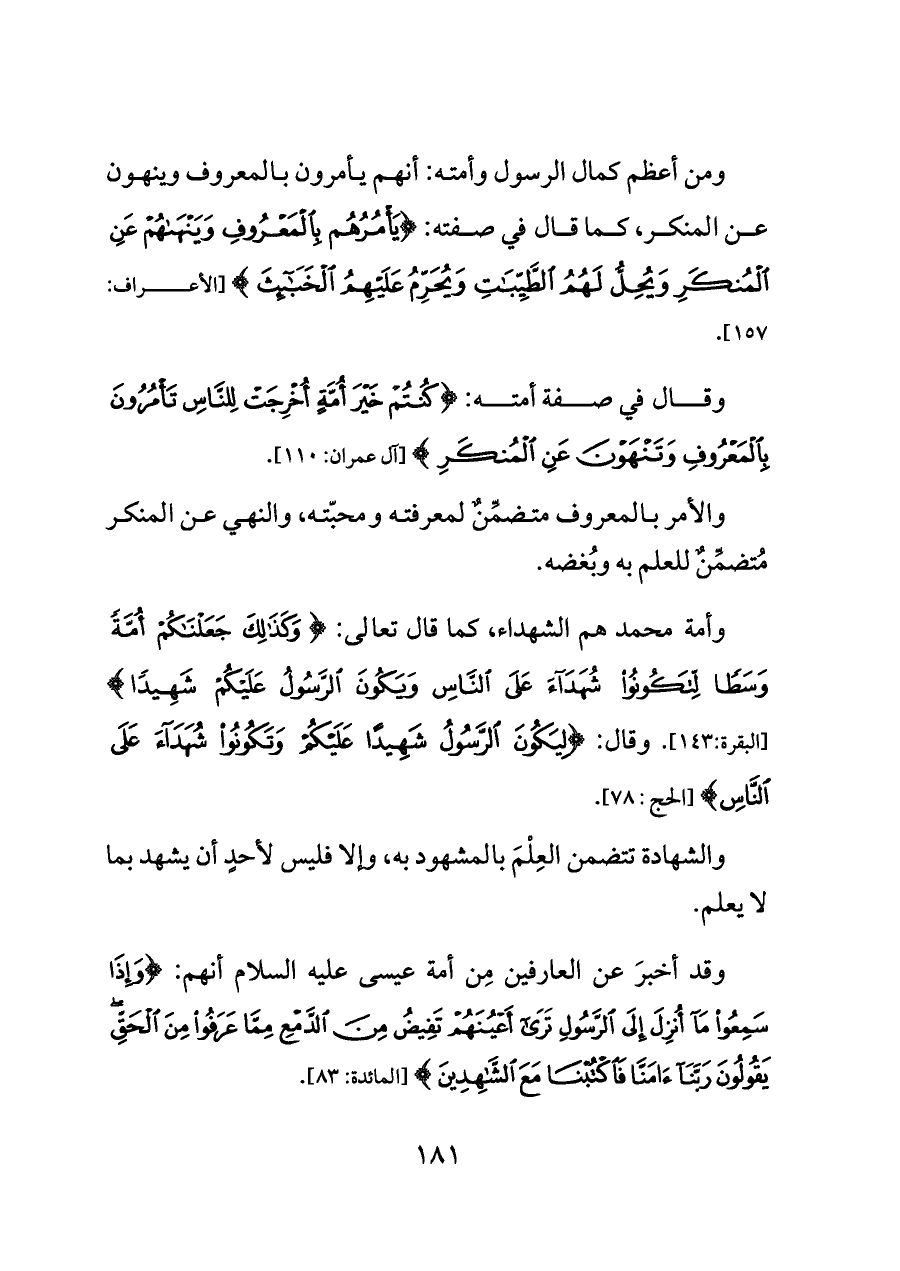 ومن أعظم كمال الرسول وأمته: أنهم يأمرون بالمعروف وينهون
عن المنكر، كما قال في صفته: ﴿يَأْمُرُهُم بِٱلْمَعْرُوفِ وَيَنْهَىٰهُمْ عَنِ
ٱلْمُنكَرِ وَيُحِلُّ لَهُمُ ٱلطَّيِّبَٰتِ وَيُحَرِّمُ عَلَيْهِمُ ٱلْخَبَٰٓئِثَ ﴾ [الأعراف:
١٥٧].
وقال في صفة أمته: ﴿كُنتُمْ خَيْرَ أُمَّةٍ أُخْرِجَتْ لِلنَّاسِ تَأْمُرُونَ
بِٱلْمَعْرُوفِ وَتَنْهَوْنَ عَنِ ٱلْمُنكَرِ ﴾ [آل عمران: ١١٠].
والأمر بالمعروف متضمِّنٌ لمعرفته ومحبّته، والنهي عن المنكر
مُتضمِّنٌ للعلم به وبُغضه.
وأمة محمد هم الشهداء، كما قال تعالى: ﴿ وَكَذَٰلِكَ جَعَلْنَٰكُمْ أُمَّةً
وَسَطًا لِّتَكُونُوا۟ شُهَدَآءَ عَلَى ٱلنَّاسِ وَيَكُونَ ٱلرَّسُولُ عَلَيْكُمْ شَهِيدًا ﴾
[البقرة:١٤٣]. وقال: ﴿لِيَكُونَ ٱلرَّسُولُ شَهِيدًا عَلَيْكُمْ وَتَكُونُوا۟ شُهَدَآءَ عَلَى
ٱلنَّاسِ﴾ [الحج: ٧٨].
والشهادة تتضمن العِلْمَ بالمشهود به، وإلا فليس لأحدٍ أن يشهد بما
لا يعلم.
وقد أخبرَ عن العارفين مِن أمة عيسى عليه السلام أنهم: ﴿وَإِذَا
سَمِعُوا۟ مَآ أُنزِلَ إِلَى ٱلرَّسُولِ تَرَىٰٓ أَعْيُنَهُمْ تَفِيضُ مِنَ ٱلدَّمْعِ مِمَّا عَرَفُوا۟ مِنَ ٱلْحَقِّ ۖ
يَقُولُونَ رَبَّنَآ ءَامَنَّا فَٱكْتُبْنَا مَعَ ٱلشَّٰهِدِينَ ﴾ [المائدة: ٨٣].
١٨١